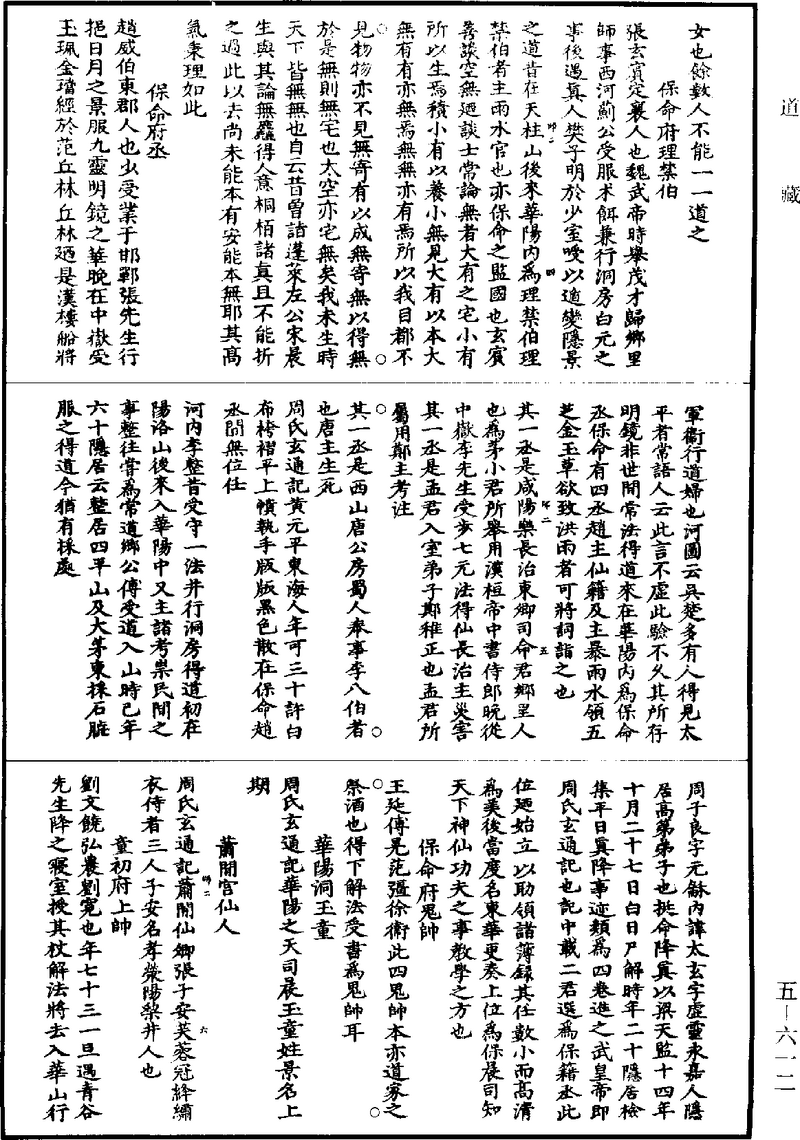 道藏
女也餘數人不能一一道之
保命府理禁伯
張玄賓定襄人也魏武帝時舉茂才歸鄉里
師事西河薊公受服朮餌兼行洞房白元之
事後遇真人樊子明於少室授以遁變隱景
之道昔在天柱山後來華陽內為理禁伯理
禁伯者主雨水官也亦保命之監國也玄賓
善談空無廼談士常論無者大有之宅小有
所以生焉積小有以養小無見大有以本大
無有有亦無焉無無亦有焉所以我目都不
見物物亦不見無寄有以成無寄無以得無
於是無則無宅也太空亦宅無矣我未生時
天下皆無無也自云昔曾詣蓬萊左公宋晨
生與其論無麤得人意桐栢諸真且不能折
之過此以去尚未能本有安能本無耶其高
氣秉理如此
保命府丞
趙威伯東郡人也少受業于邯鄲張先生行
挹日月之景服九靈明鏡之華晚在中嶽受
玉珮金璫經於范丘林丘林廼是漢樓船將
軍衞行道婦也河圖云吳楚多有人得見太
平者常語人云此言不虛此驗不久其所存
明鏡非世間常法得道來在華陽內為保命
丞保命有四丞趙主仙籍及主暴雨水領五
芝金玉草欲致洪雨者可將詞詣之也
其一丞是咸陽樂長治東鄉司命君鄉里人
也為茅小君所舉用漢桓帝中書侍郎晚從
中嶽李先生受步七元法得仙長治主災害
其一丞是孟君入室弟子鄭稚正也孟君所
屬用鄭主考注
其一丞是西山唐公房蜀人奉事李八伯者
也唐主生死
周氏玄通記黃元平東海人年可三十許白
布袴褶平上幘執手版版黑色散在保命趙
丞間無位任
河內李整昔受守一法并行洞房得道初在
陽洛山後來入華陽中又主諸考祟民間之
事整往嘗為常道鄉公傅受道入山時已年
六十隱居云整居四平山及大茅東採石腦
服之得道今猶有採處
周子良字元龢內諱太玄字虛靈永嘉人隱
居高第弟子也挺命降真以梁天監十四年
十月二十七日白日尸解時年二十隱居檢
集平日真降事迹類為四卷進之武皇帝即
周氏玄通記也記中載二君選為保籍丞此
位廼始立以助領諸簿録其任數小而高清
為美後當度名東華更奏上位為保晨司知
天下神仙功夫之事教學之方也
保命府鬼帥
王延傅晃范彊徐衛此四鬼帥本亦道家之
祭酒也得下解法受書為鬼帥耳
華陽洞玉童
周氏玄通記華陽之天司晨玉童姓景名上
期
蕭閑宮仙人
周氏玄通記蕭閑仙卿張子安芙蓉冠絳繡
衣侍者三人子安名孝滎陽梨井人也
童初府上帥
劉文饒弘農劉寬也年七十三一旦遇青谷
先生降之寢室授其杖解法將去入華山行
五—六一二